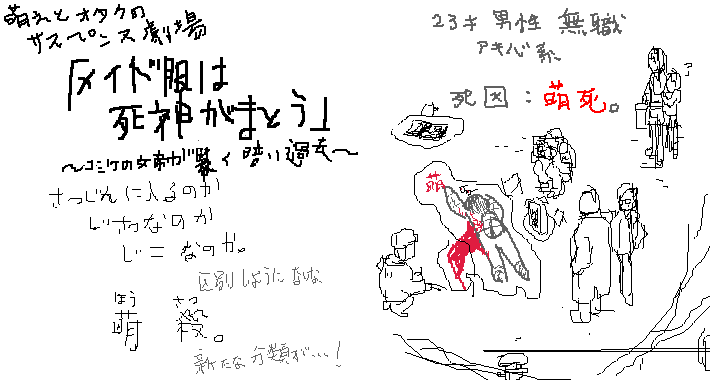 萌えとオタクの
サスペンス劇場
「メイド服は
死神がまとう」
〜コミケの女帝が暴く暗い過去〜
さつじんに入るのか
じさつなのか
じこなのか。
区別しようになな
ほう さつ
萌 殺。
新たな分類が…!
23才 男性 無職
アキバ系
死因:萌死。
萌
?